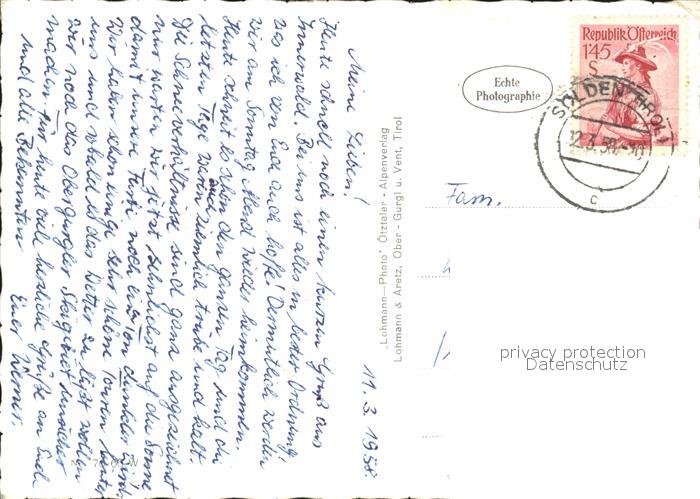 11.3.1958.
Meine Lieben!
Heute schnell noch einen kurzen Gruß aus
Innerwald. Bei uns ist alles in bester Ordnung,
was ich von Euch auch hoffe! Vermutlich werden
wir am Sonntag Abend wieder heimkommen.
Heute schneit es schon den ganzen Tag und die
letzten Tage waren auch ziemlich trüb und kalt.
Die Schneeverhältnisse sind ganz ausgezeichnet
nur warten wir jetzt zumindest auf die Sonne
damit unsere Tage noch
Wir haben schon einige sehr schöne Touren hinter
uns und sobald es das Wetter zu läßt wollen
wir noch das Obergurgler Skigebiet unsicher
machen. Für heut viel herzliche Grüße an Euch
und alle Bekannten Euer Werner.
"Lohmann—Photo" Ötztaler - Alpenverlag
Lohmann & Aretz, Ober - Gurgl u. Vent, Tirol
Echte
Photographie
Republik Österreich
1'45
S
SÖLDEN (TIROL)
12.3.58
c
Fam.
privacy protection
Datenschutz